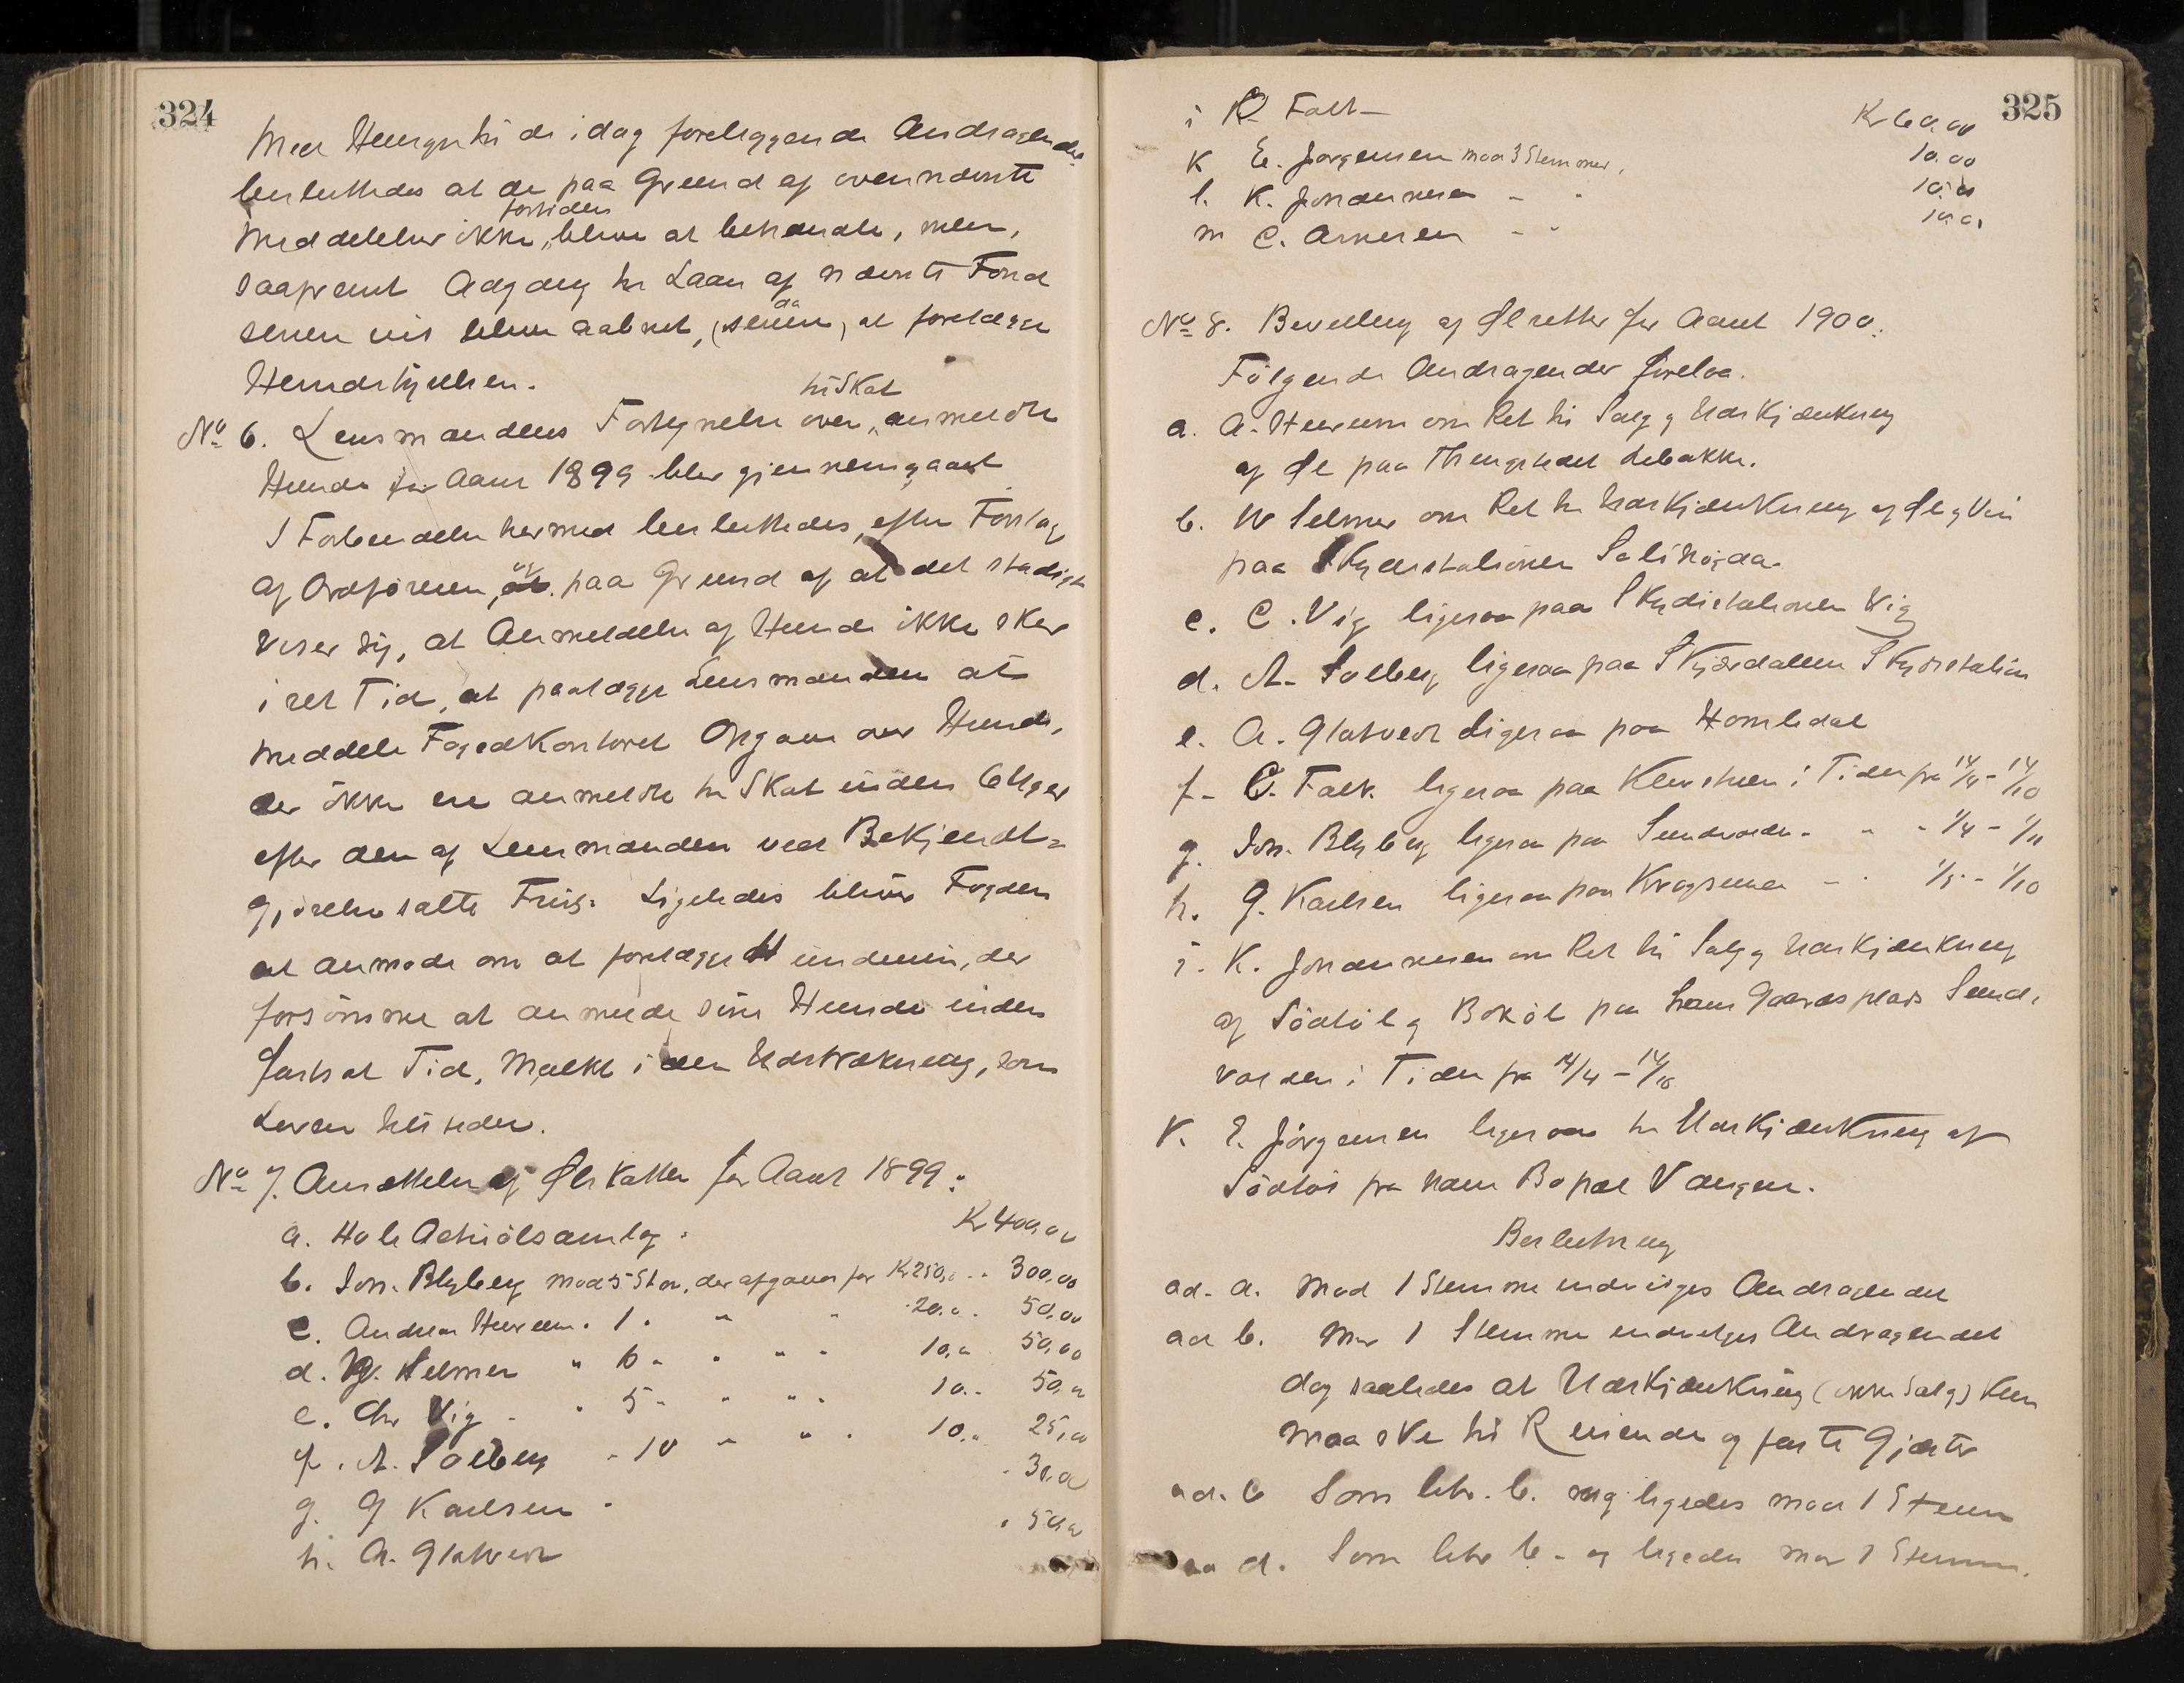 324
Med Hensyn til de i dag foreliggende Andragender
besluttedes at de paa Grund af ovennævnte
fortiden
Meddelelser ikke, blive at behandle, men,
saafremt Adgang til Laan af nævnte Fond
da
senere vil blive aabnet, (senere) at forelægge
Herredstyrelsen.
til Skat
No 6. Lensmandens Fortegnelse over, anmeldte
Hunde for Aaret 1899 blev gjennemgaaet.
I Forbindelse hermed besluttedes, efter Forslag
og
af Ordføreren, paa Grund af at det stadigt
viser sig, at Anmeldelse af Hunde ikke sker
i ret Tid, at paalægge Lensmanden at
meddele Fogedkontoret Opgave over Hunde,
der ikke ere anmeldte til Skat inden 6 Uger
efter den af Lensmanden ved Bekjendt-
gjørelse satte Frist. Ligeledes bliver Fogden
at anmode om at forelægge Enhver, der
forsømmer at anmelde sine Hunde inden
fastsat Tid, Mulkt i den Udstrækning, som
Loven tilsteder.
No 7. Ansættelse af Ølskatten for Aaret 1899:
a. Hole Actieølsamlag. Kr 400,00
b. Joh. Blyberg mod 5 Stm, der afgaves for Kr 250,0 .. 300,00
c. Andreas Heereem. 1. " " 20.. 50,00
d. W. Selmer " 6 " " " 10,. 50,00
e. Chr Vig " 5 " " " 10.. 50,00
f. A. Solberg - 10 " " " 10,. 25,00
g. G Karlsen . - 30.00
h. A. Glatved . 50,00
325
i O. Falk Kr 60,00
k E. Jørgensen mod 3 Stemmer, 10.00
l. K. Johannesen - " 10.00
m C. Arnesen - " 10.00
No 8. Bevilling af Ølretter for Aaret 1900.
Følgende Andragender forelaa.
a. A. Heereem om Ret til Salg og Udskjænkning
af Øl paa Thingstedet Lebakke.
b. W Selmer om Ret til Udskjænkning af Øl og Vin
paa Skydsstationen Solihøgda.
c. C. Vig ligesaa paa Skydsstationen Vig
d. A. Solberg ligesaa paa Skjærdalen Skydsstation
e. A. Glatved ligesaa paa Homledal
f. O. Falk ligesaa paa Klevstuen i Tiden fra 14/4 - 14/10
g. Joh. Blyberg ligesaa paa Sundvolden - " - 1/4 - 1/11
h. G. Karlsen ligesaa paa Krogstuen - " 1/5 - 1/10
i. K. Johannesen om Ret til Salg og Udskjænkning
af Sødtøl og Bokøl paa hans Gaardsplads Sund-
volden i Tiden fra 14/4 - 14/10
k. E. Jørgensen ligesaa til Udskjænkning af
Sødtøl fra hans Bopæl Vangen.
Beslutning
ad. a. Mod 1 Stemme indvilges Andragendet
ad b. Mod 1 Stemme indvilges Andragendet
dog saaledes at Udskjænkning (ikke Salg) kun
maa ske til Reisende og faste Gjæster
ad. c Som litr. b. og ligeledes mod 1 Stemme
ad d. Som litr b - og ligeledes mod 1 Stemme.